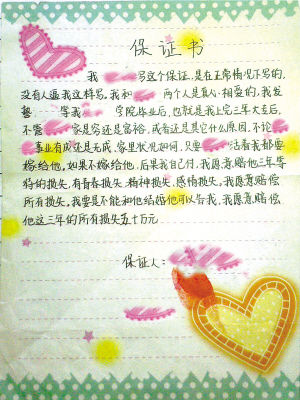 保证书
我 写这个保证,是在正常情况下写的,
没有人逼我这样写。我和 两个人是真心相爱的,我发
誓 等我 学院毕业后,也就是我上完三年大专后,
不管 家是穷还是富裕,或者还是其它什么原因,不论
事业有成还是无成,家里状况如何,只要 活着我都要
嫁给他。如果不嫁给他,后果我自己付,我愿意赔他三年等
待的损失,有青春损失,精神损失,感情损失。我愿意赔偿
所有损失。我要是不能和他结婚他可以告我,我愿意赔偿
他这三年的所有损失五十万元。
保证人: